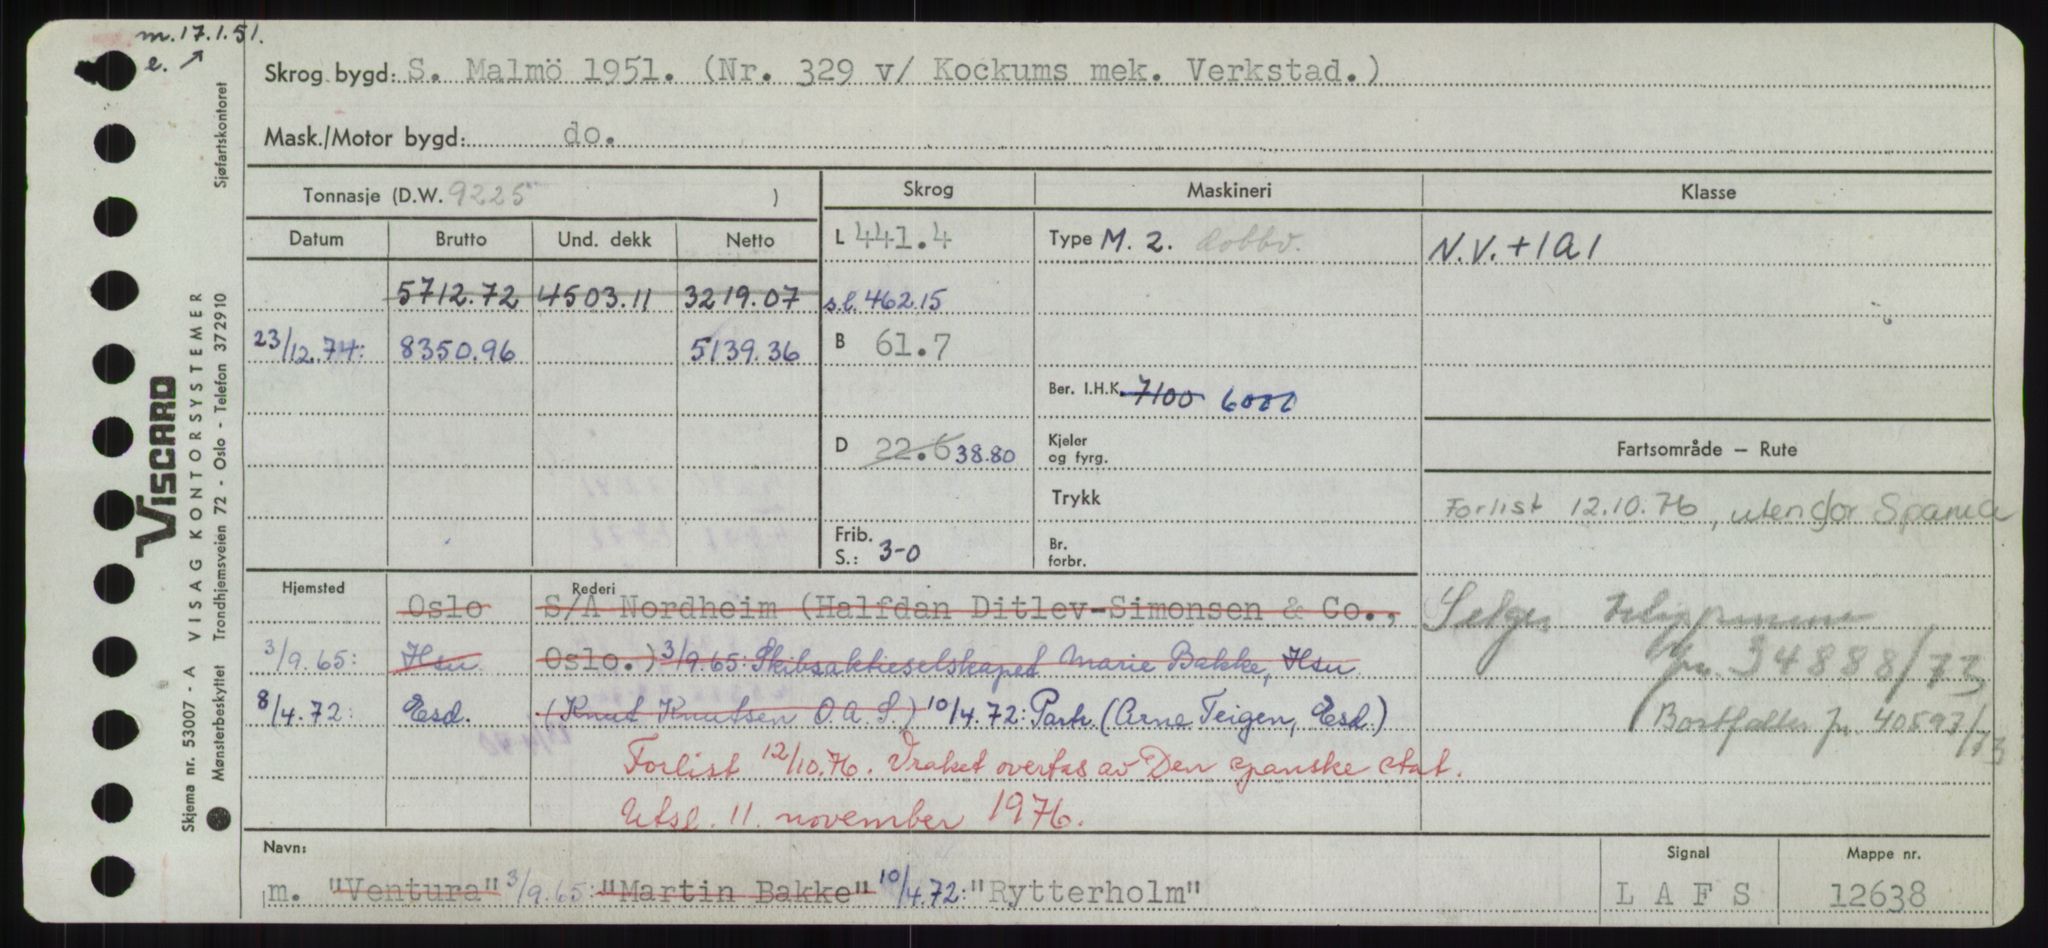 m. 17.1.51.
e. ↗
Skrog bygd: S. Malmö 1951. (Nr. 329 v/ Kockums mek. Verkstad.)
Mask./Motor bygd: do.
Tonnasje (D.W. 9225 )
Skrog
Maskineri
Klasse
Datum Brutto Und. dekk Netto
L 441.4
Type M. 2. dobbv.
N.V. +1A1
5712.72 4503.11 3219.07
s.l. 462.15
23/12.74: 8350.96 5139.36
B 61.7
Ber. I.H.K. 7100 6000
D 22.6 38.80
Kjeler og fyrg.
Fartsområde – Rute
Trykk
Forlist 12.10.76, utenfor Spania
Frib. S.: 3-0
Br. forbr.
Hjemsted
Rederi
Oslo S/A Nordheim (Halfdan Ditlev-Simonsen & Co.,
3/9.65: Hsu Oslo.) 3/9.65: Skibsaktieselskapet Marie Bakke, Hsu
8/4.72: Esd. (Knut Knutsen O.A.S.) 10/4.72: Partr. (Arne Teigen, Esd.)
Forlist 12/10.76. Vraket overtas av Den spanske stat.
Utsl. 11. november 1976.
Selges
jnr. 34888/73
Bortfaller jr. 40597/73
Navn:
m. "Ventura" 3/9.65: "Martin Bakke" 10/4.72: "Rytterholm"
Signal
LAFS
Mappe nr.
12638
Skjema nr. 53007 - A VISAG KONTORSYSTEMER
Mønsterbeskyttet Trondhjemsveien 72 - Oslo - Telefon 372910 Sjøfartskontoret
VISCARD